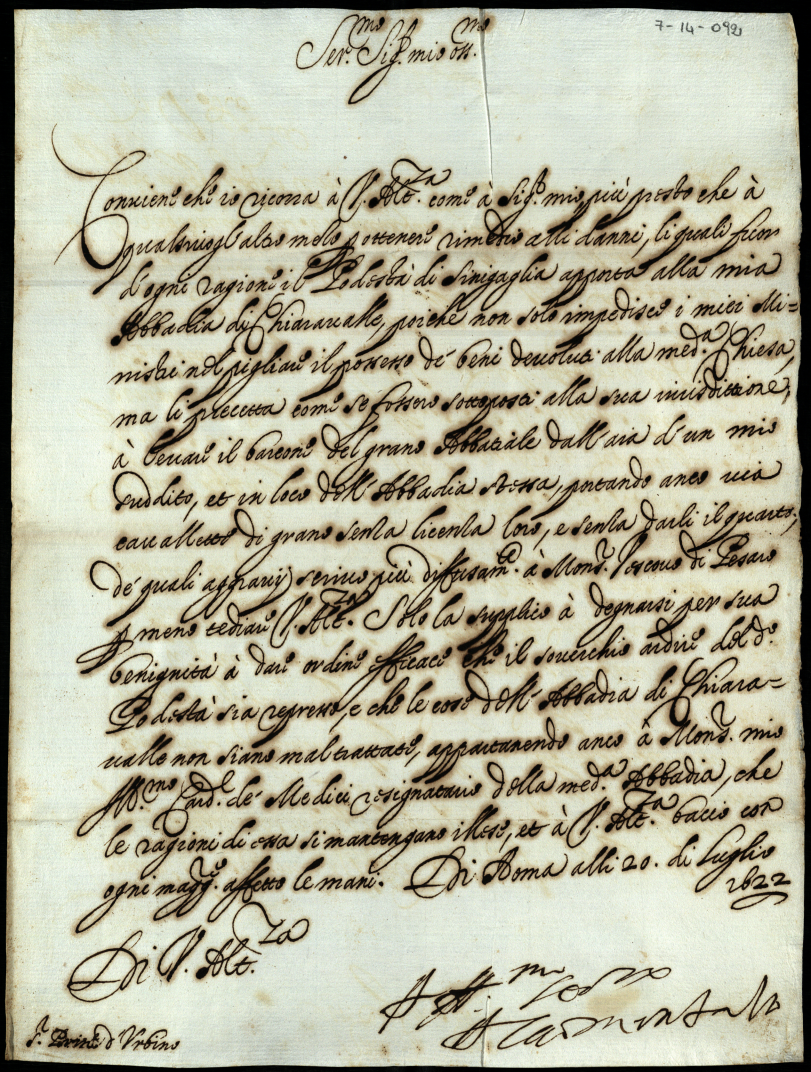 7-14-092
Ser.mo Sig.r mio oss.mo
Conviene che io ricorra à V. Alt.za come à Sig.r mio più presto che à
qualsivogl'altro mezo p ottenere rimedio alli danni, li quali fuor
d'ogni ragione il Podestà di Sinigaglia apporta alla mia
Abbadia di Chiaravalle, poiche non solo impedisce i miei Mi=
nistri nel pigliare il possesso de beni devoluti alla med.a Chiesa,
ma li precetta come se fossero sottoposti alla sua iurisdittione,
à levare il barcone del grano Abbatiale dall'aia d'un mio
suddito, et in loco dell'Abbadia stessa, portando anco via
cavalletti di grano senza licenza loro, e senza darli il quarto;
de quali aggravij scrivo più diffusam.e à Mons.r Vescovo di Pesaro
p meno tediare V. Alt.za Solo la supplico à degnarsi per sua
benignità à dare ordine efficace che il soverchio ardire del d.o
Podestà sia represso, e che le cose dell'Abbadia di Chiara=
valle non siano maltrattate, appartenendo anco à Mons.r mio
Ill.mo Card.l de Medici resignatario della med.a Abbadia, che
le ragioni di essa si mantengano illese, et à V. Alt.za bacio con
ogni magg.re affetto le mani. Di Roma alli 20. di Luglio
1622
Di V. Alt.za
Aff.mo
Montalto
S.r Princ.e d Urbino